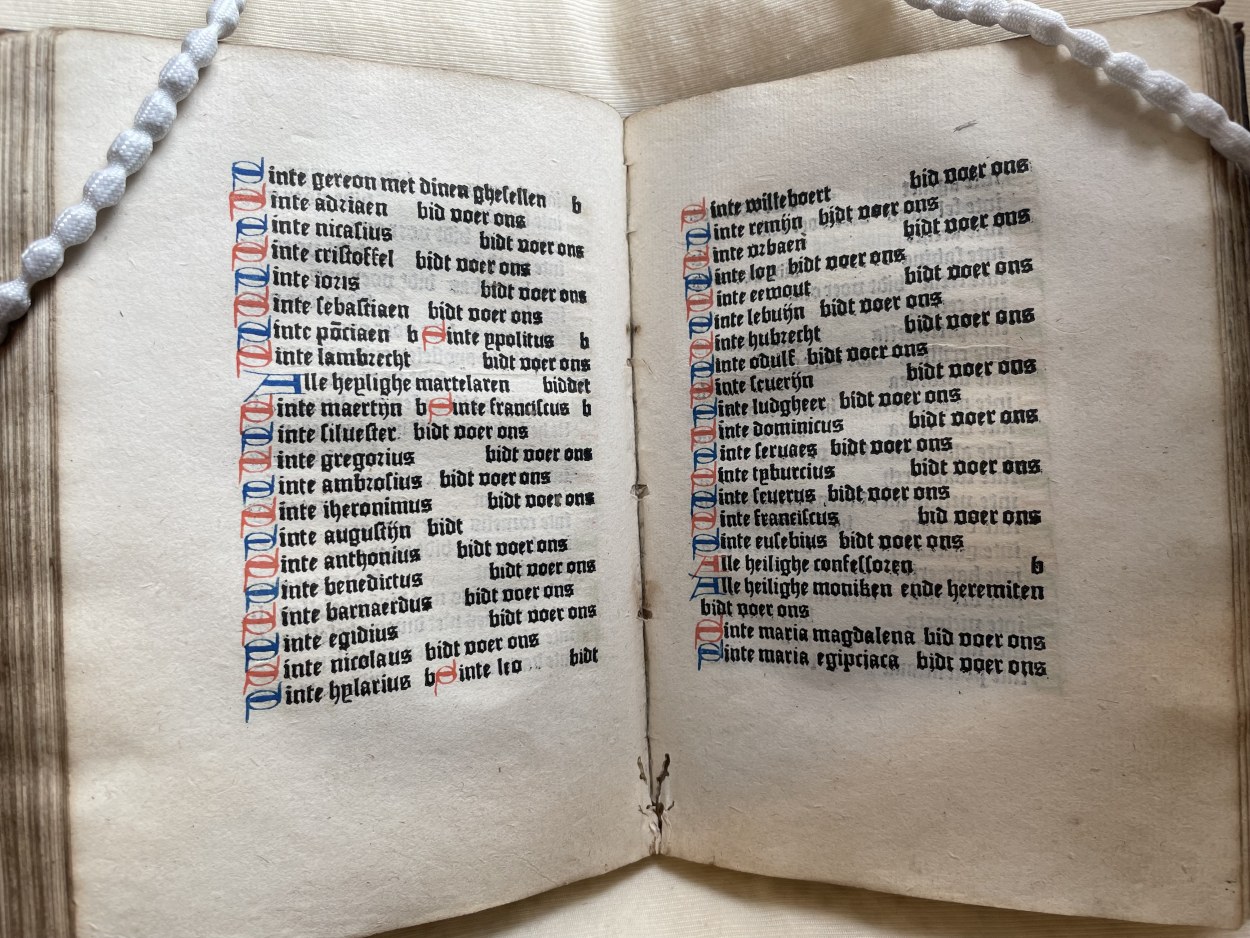 Sinte gereon met dinen ghesellen b
Sinte adriaen bid voer ons
Sinte nicasius bidt voer ons
Sinte cristoffel bidt voer ons
Sinte ioris bidt voer ons
Sinte sebastiaen bidt voer ons
Sinte pāciaen b Sinte ypolitus b
Sinte lambrecht bidt voer ons
Alle heylighe martelaren biddet
Sinte maertijn b Sinte franciscus b
Sinte siluester bidt voer ons
Sinte gregorius bidt voer ons
Sinte ambrosius bidt voer ons
Sinte iheronimus bidt voer ons
Sinte augustijn bidt
Sinte anthonius bidt voer ons
Sinte benedictus bidt voer ons
Sinte barnaerdus bidt voer ons
Sinte egidius bidt voer ons
Sinte nicolaus bidt voer ons
Sinte hylarius b Sinte leo bidt
Sinte willeboert bid voer ons
Sinte remijn bidt voer ons
Sinte vrbaen bidt voer ons
Sinte loy bidt voer ons
Sinte eewout bidt voer ons
Sinte lebuijn bidt voer ons
Sinte hubrecht bidt voer ons
Sinte odulf bidt voer ons
Sinte seuerijn bidt voer ons
Sinte ludgheer bidt voer ons
Sinte dominicus bidt voer ons
Sinte seruaes bidt voer ons
Sinte tyburcius bidt voer ons
Sinte seuerus bidt voer ons
Sinte franciscus bid voer ons
Sinte eusebius bidt voer ons
Alle heilighe confessoren b
Alle heilighe moniken ende heremiten
bidt voer ons
Sinte maria magdalena bid voer ons
Sinte maria egipciaca bidt voer ons